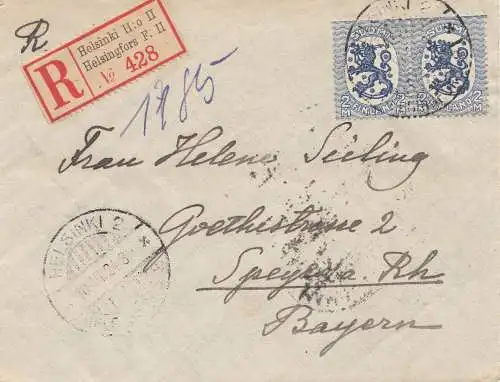 R.
R
Helsinki H:o II
Helsingfors F. II
No 428
1785
SUOMI SUOMI
2 M 2 M
FINLAND FINLAND
HELSINKI 2
Frau Helene Seiling
Goethestrasse 2
Speyer a. Rh
Bayern
HELSINKI 2